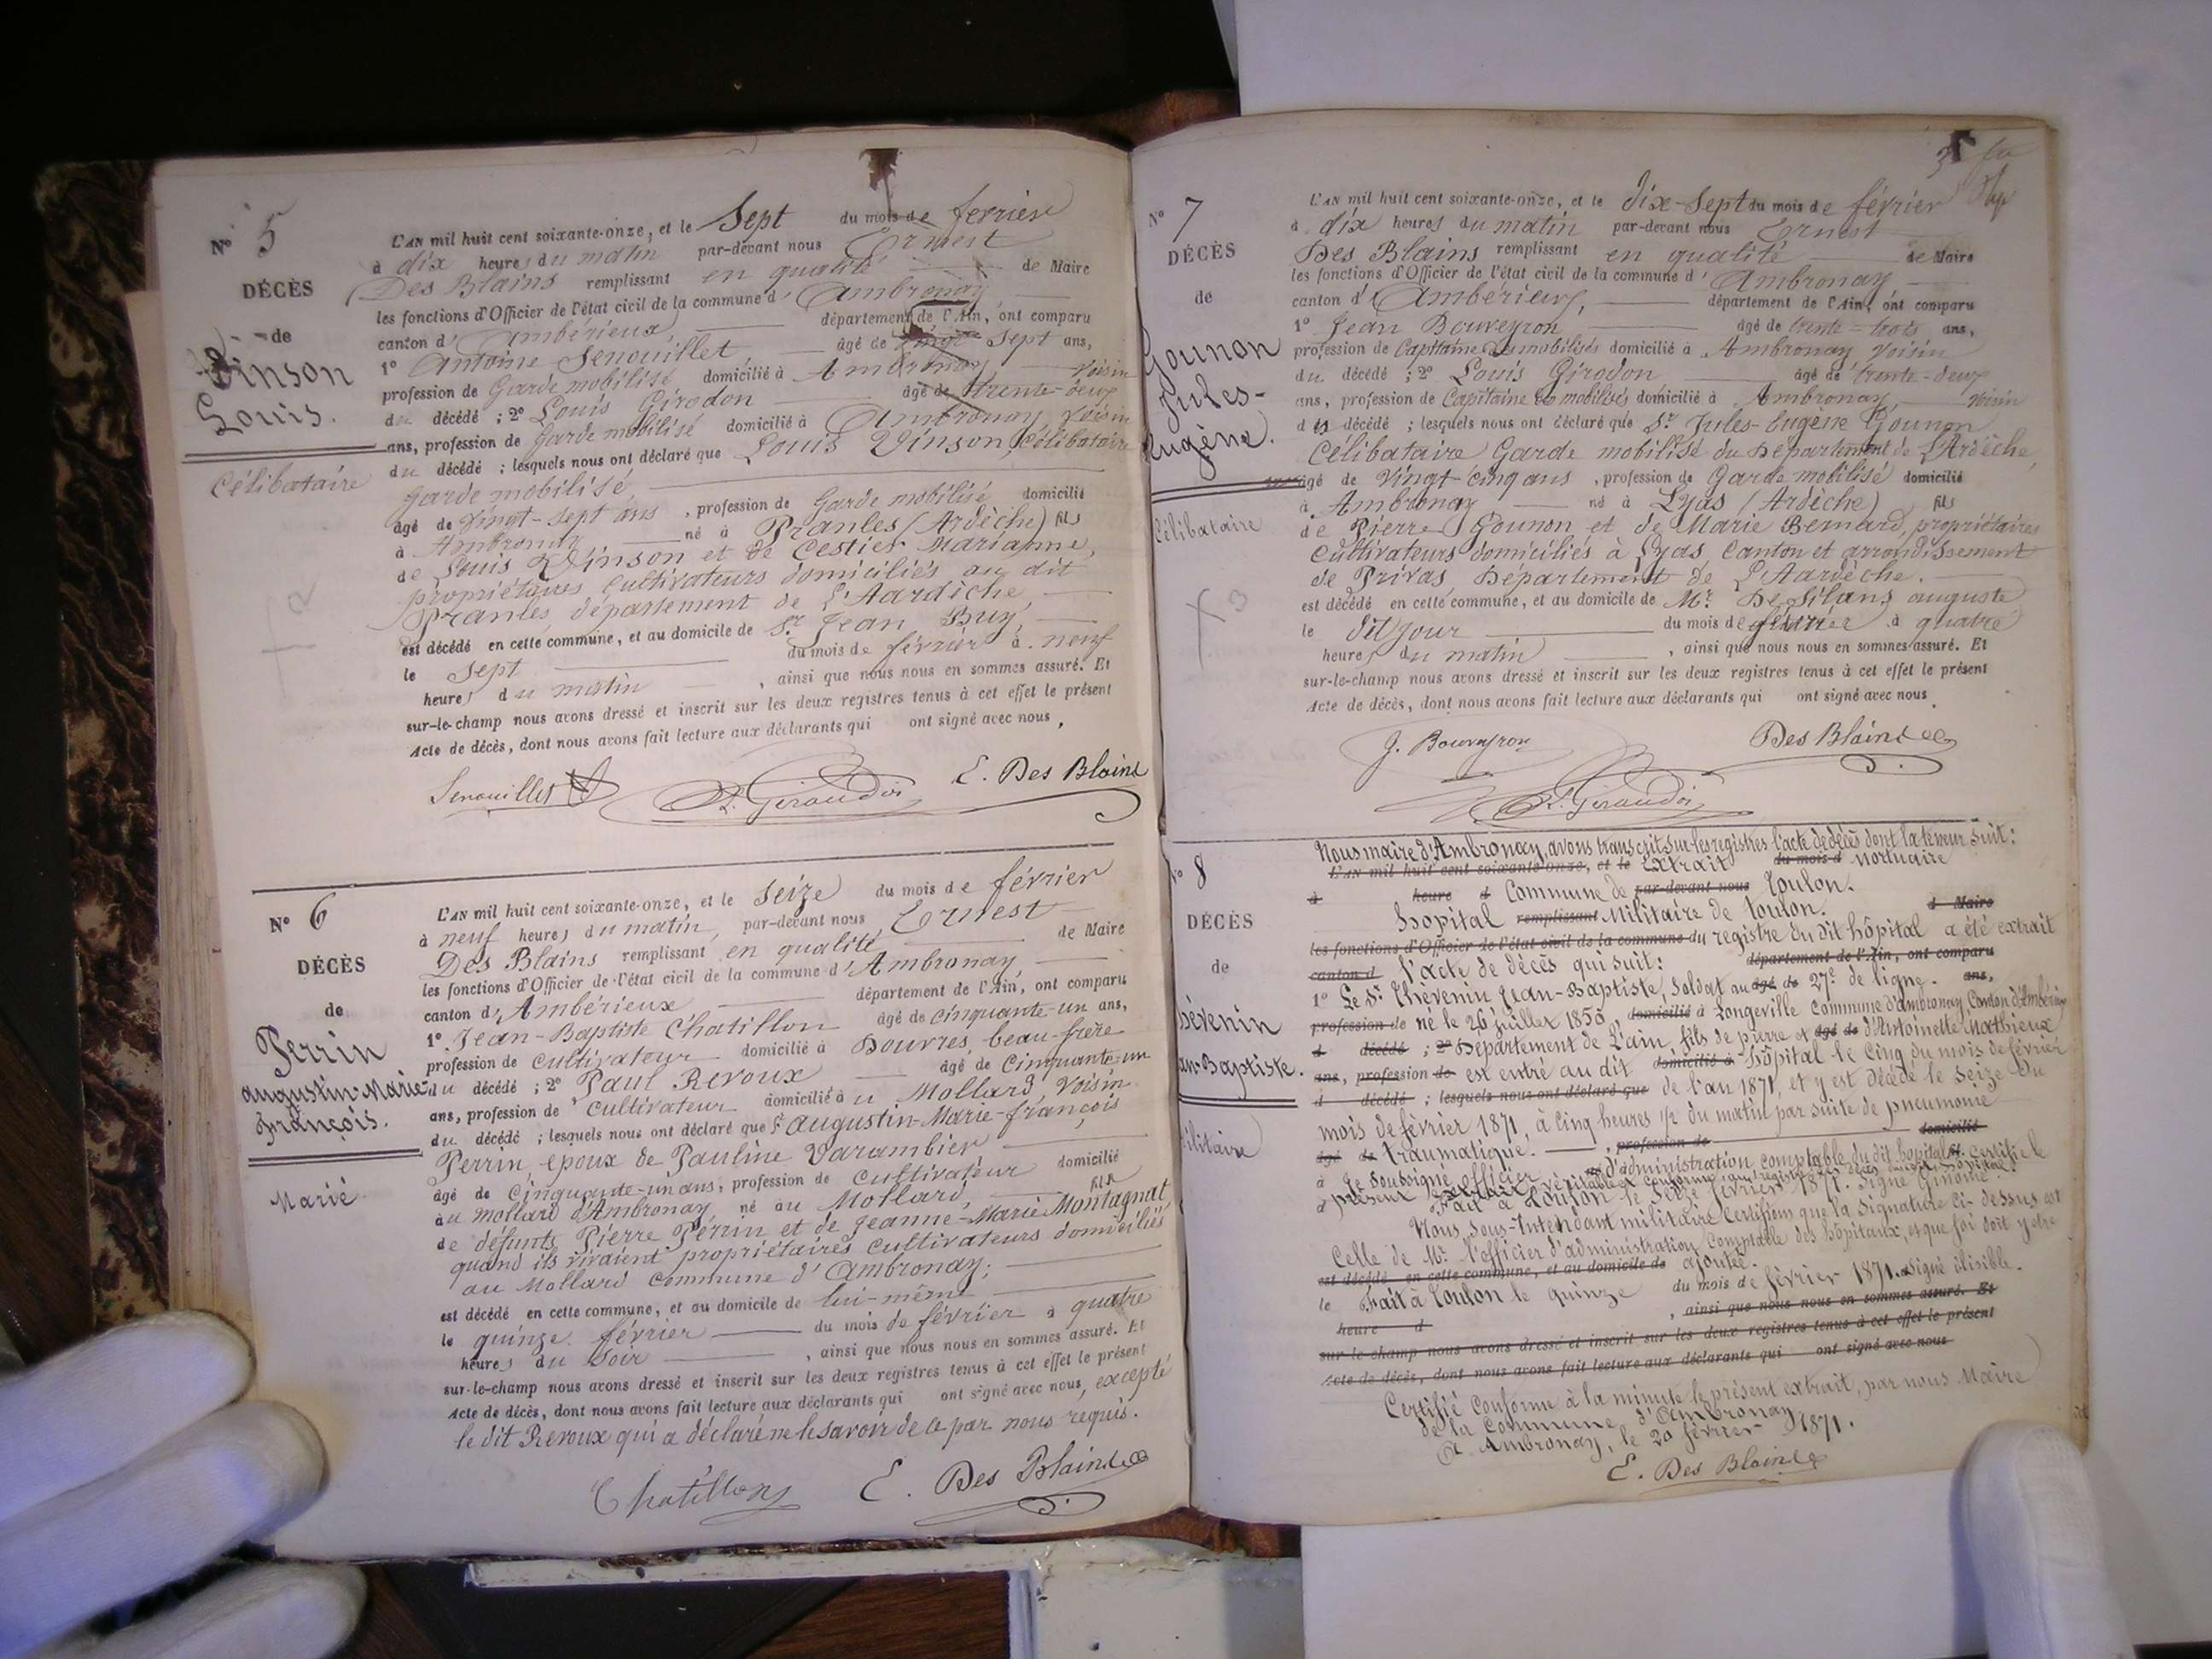 N° 5
DÉCÈS
de
Vinson
Louis.
Célibataire
L'AN mil huit cent soixante-onze, et le Sept du mois de ferrier
à dix heures du matin par-devant nous Ernest
Des Blains remplissant en qualité de Maire
les fonctions d'Officier de l'état civil de la commune d'Ambronay
canton d'Ambérieux, département de l'Ain, ont comparu
1° Antoine Senouillet âgé de vingt Sept ans,
profession de Garde mobilisé domicilié à Ambronay voisin
du décédé ; 2° Louis Girodon âgé de trente-deux
ans, profession de Garde mobilisé domicilié à Ambronay voisin
du décédé ; lesquels nous ont déclaré que Louis Vinson, Célibataire
Garde mobilisé
âgé de vingt-sept ans, profession de Garde mobilisé domicilié
à Ambronay né à Pranles (Ardèche) fils
de Louis Vinson et de Cestier Marianne,
propriétaires cultivateurs domiciliés au dit
Pranles, département de L'Aardèche,
est décédé en cette commune, et au domicile de Sr Jean Buy,
le Sept du mois de février à neuf
heures du matin, ainsi que nous nous en sommes assuré. Et
sur-le-champ nous avons dressé et inscrit sur les deux registres tenus à cet effet le présent
Acte de décès, dont nous avons fait lecture aux déclarants qui ont signé avec nous,
Senouillet L. Giraudon E. Des Blains
N° 6
DÉCÈS
de
Perrin
augustin-Marie-
françois.
Marié
L'AN mil huit cent soixante-onze, et le Seize du mois de février
à neuf heures du matin, par-devant nous Ernest
Des Blains remplissant en qualité de Maire
les fonctions d'Officier de l'état civil de la commune d'Ambronay
canton d'Ambérieux département de l'Ain, ont comparu
1° Jean-Baptiste Chatillon âgé de cinquante-un ans,
profession de cultivateur domicilié à Douvres beau-frère
du décédé ; 2° Paul Revoux âgé de Cinquante-un
ans, profession de cultivateur domicilié au Mollard, voisin
du décédé ; lesquels nous ont déclaré que Sr Augustin-Marie-françois
Perrin, époux de Pauline Varambier
âgé de Cinquante-un ans, profession de Cultivateur domicilié
au mollard d'Ambronay, né au Mollard, fils
de défunts Pierre Perrin et de Jeanne-Marie Montagnat
quand ils vivaient propriétaires cultivateurs domiciliés
au Mollard commune d'Ambronay;
est décédé en cette commune, et au domicile de lui-même
le quinze février du mois de février à quatre
heures du soir, ainsi que nous nous en sommes assuré. Et
sur-le-champ nous avons dressé et inscrit sur les deux registres tenus à cet effet le présent
Acte de décès, dont nous avons fait lecture aux déclarants qui ont signé avec nous, excepté
le dit Revoux qui a déclaré ne le savoir de ce par nous requis.
Chatillon E. Des Blains
N° 7
DÉCÈS
de
Gounon
Jules-
Eugène.
Célibataire
L'AN mil huit cent soixante-onze, et le dix-Sept du mois de février
à dix heures du matin par-devant nous Ernest
Des Blains remplissant en qualité de Maire
les fonctions d'Officier de l'état civil de la commune d'Ambronay
canton d'Ambérieux, département de l'Ain, ont comparu
1° Jean Bouveyron âgé de trente-trois ans,
profession de Capitaine des mobilisés domicilié à Ambronay voisin
du décédé ; 2° Louis Girodon âgé de trente-deux
ans, profession de Capitaine de mobilisés domicilié à Ambronay, voisin
du décédé ; lesquels nous ont déclaré que Sr Jules-Eugène Gounon
Célibataire Garde mobilisé du Département de L'Ardèche,
âgé de vingt-cinq ans, profession de Garde mobilisé domicilié
à Ambronay né à Lyas (Ardèche) fils
de Pierre Gounon et de Marie Bernard, propriétaires
cultivateurs domiciliés à Lyas, Canton et arrondissement
de Privas, Département de L'Aardèche.
est décédé en cette commune, et au domicile de Mr De Silans auguste
le dit jour du mois de février à quatre
heures du matin, ainsi que nous nous en sommes assuré. Et
sur-le-champ nous avons dressé et inscrit sur les deux registres tenus à cet effet le présent
Acte de décès, dont nous avons fait lecture aux déclarants qui ont signé avec nous.
J. Bouveyron Des Blains
L. Giraudon
N° 8
DÉCÈS
de
hévenin
an-Baptiste.
ilitaire
Nous maire d'Ambronay, avons transcrit sur les registres l'acte de décès dont la teneur suit :
L'AN mil huit cent soixante-onze, et le Extrait du mois d mortuaire
à heure d Commune de par-devant nous Toulon.
hopital remplissant Militaire de Toulon. d Maire
les fonctions d'Officier de l'état civil de la commune du registre du dit hôpital a été extrait
canton d l'acte de décès qui suit : département de l'Ain, ont comparu
1° Le Sr Thévenin Jean-Baptiste, soldat au âgé de 27e de ligne. ans,
profession de né le 26 juillet 1850, domicilié à Longeville Commune d'Ambronay Canton d'Ambérieu
d décédé ; 2° Département de L'ain, fils de pierre et âgé de d'Antoinette Mathieux
ans, profession de est entré au dit domicilié à hôpital le cinq du mois de février
d décédé ; lesquels nous ont déclaré que de l'an 1871, et y est décédé le seize du
mois de février 1871, à cinq heures 1/2 du matin par suite de pneumonie
âgé de traumatique. , profession de domicilié
à Je soussigné officier d'administration comptable du dit hopital certifie le
présent extrait véritable et conforme au registre des décès du dit hôpital.
Fait à Toulon le Seize février 1871. Signé
Nous sous-Intendant militaire Certifions que la Signature Ci-dessus est
Celle de Mr l'officier d'administration Comptable des hôpitaux, et que foi doit y etre
est décédé en cette commune, et au domicile de ajoutée.
le Fait à Toulon le quinze du mois de février 1871. Signé illisible.
heure d , ainsi que nous nous en sommes assuré. Et
sur-le-champ nous avons dressé et inscrit sur les deux registres tenus à cet effet le présent
Acte de décès, dont nous avons fait lecture aux déclarants qui ont signé avec nous
Certifié Conforme à la minute le présent extrait, par nous Maire
de la Commune d'Ambronay
A Ambronay, le 20 février 1871.
E. Des Blains